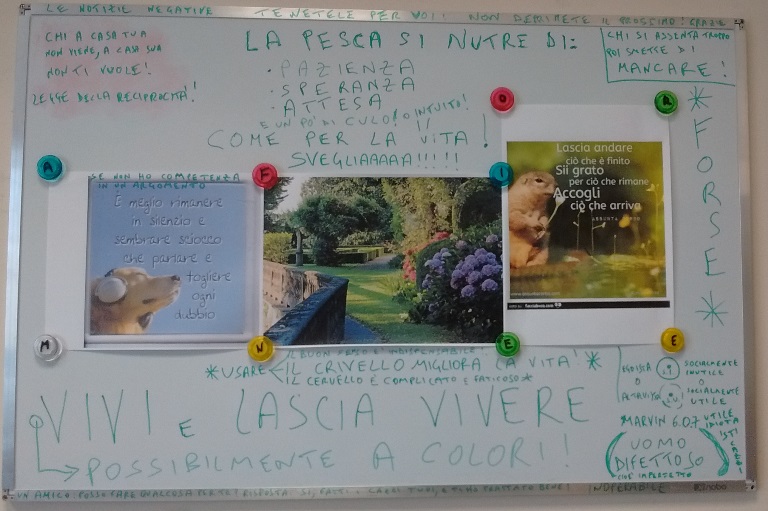 LE NOTIZIE NEGATIVE TENETELE PER VOI! NON DEPIMETE IL PROSSIMO! GRAZIE
CHI A CASA TUA
NON VIENE, A CASA SUA
NON TI VUOLE!
LEGGE DELLA RECIPROCITÀ!
LA PESCA SI NUTRE DI:
• PAZIENZA
• SPERANZA
• ATTESA
E UN PO' DI CULO! O INTUITO!
COME PER LA VITA!
SVEGLIAAAAA!!!!!
CHI SI ASSENTA TROPPO
POI SMETTE DI
MANCARE!
* FORSE *
A F O R
I
SE NON HO COMPETENZA
IN UN ARGOMENTO
È meglio rimanere
in silenzio e
sembrare sciocco
che parlare e
togliere
ogni
dubbio
Lascia andare
ciò che è finito
Sii grato
per ciò che rimane
Accogli
ciò che arriva
M N E E
* USARE IL CRIVELLO MIGLIORA LA VITA! *
IL CERVELLO È COMPLICATO E FATICOSO *
VIVI E LASCIA VIVERE
POSSIBILMENTE A COLORI!
EGOISTA
O
ALTRUISTA
SOCIALMENTE
INUTILE
O
SOCIALMENTE
UTILE
MARVIN 6.0.7 UTILE
IDIOTA
UOMO
DIFETTOSO
UN AMICO